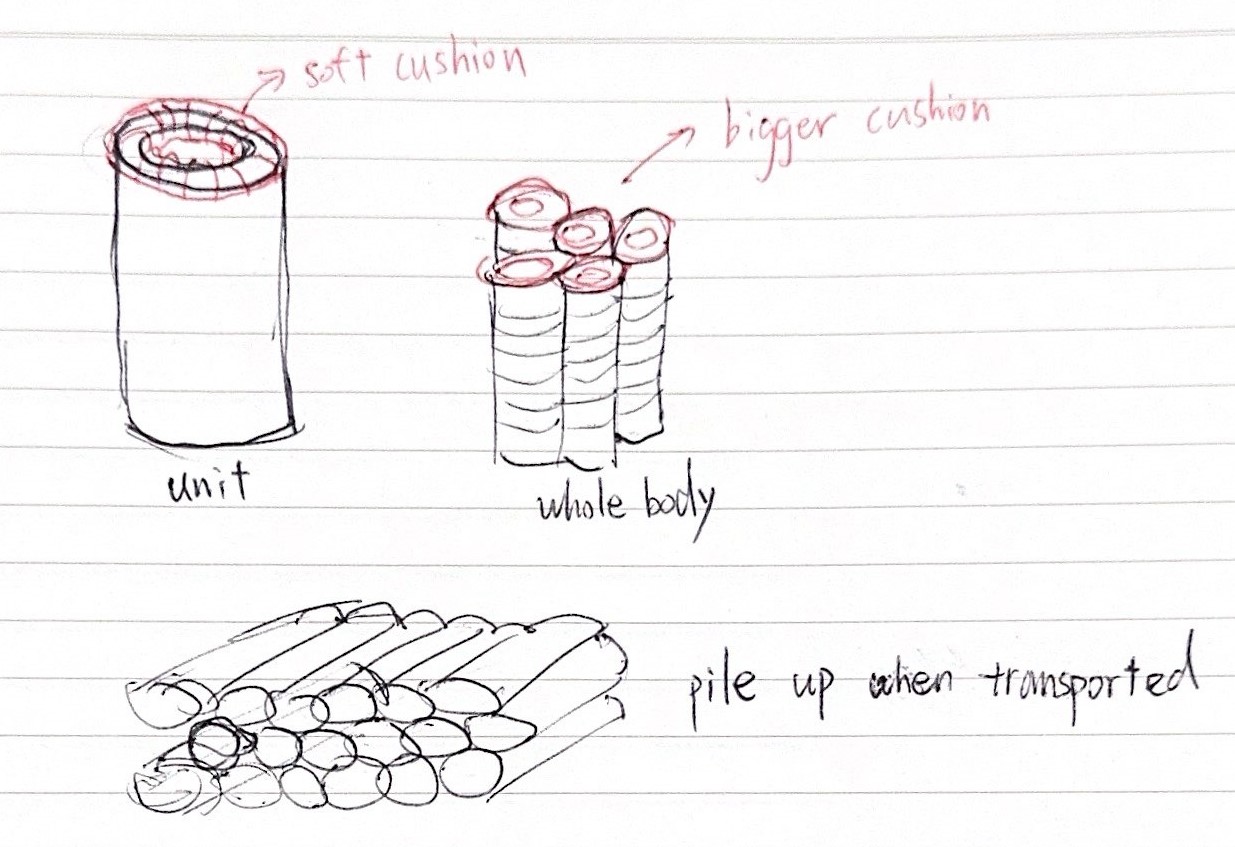 soft cushion
bigger cushion
unit
whole body
pile up when transported